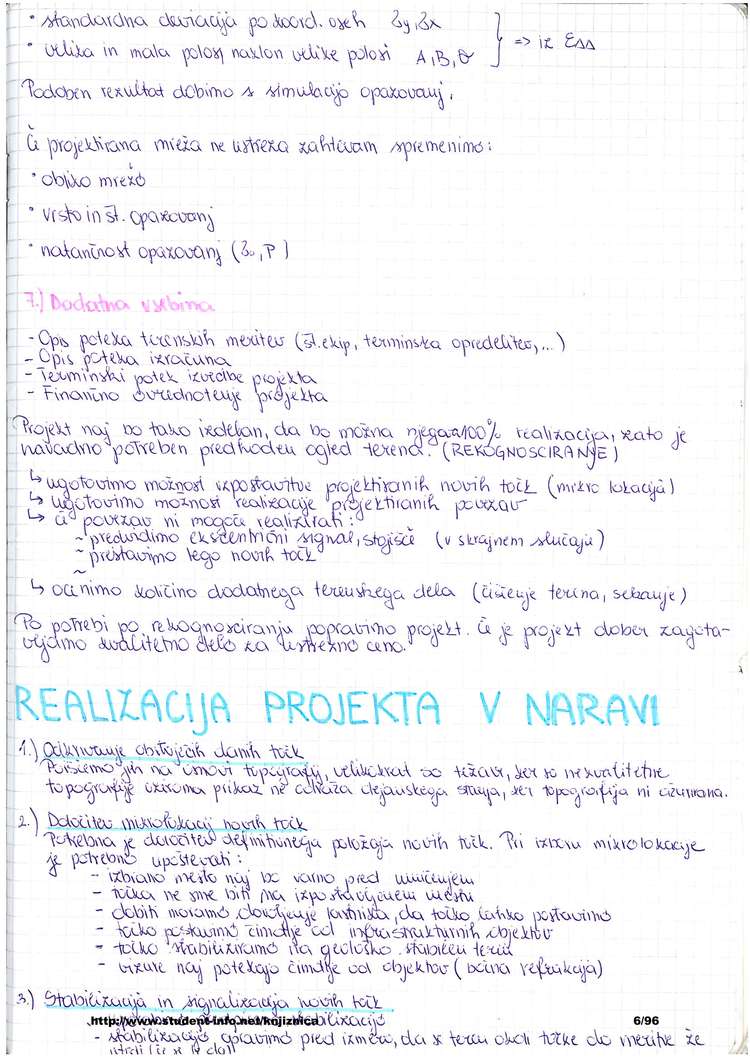 • standardna deviacija po koord. oseh σy, σx
• velika in mala polos, naklon velike polosi A, B, θ } => iz ESS
Podoben rezultat dobimo s simulacijo opazovanj.
Če projektirana mreža ne ustreza zahtevam spremenimo:
• obliko mreže
• vrsto in št. opazovanj
• natančnost opazovanj (σ₀, P)
7.) Dodatna vsebina
- Opis poteka terenskih meritev (št. ekip, terminska opredelitev,...)
- Opis poteka izračuna
- Terminski potek izvedbe projekta
- Finančno ovrednotenje projekta
Projekt naj bo tako izdelan, da bo možna njegova 100% realizacija, zato je
navadno potreben predhoden ogled terena. (REKOGNOSCIRANJE)
↳ ugotovimo možnost vzpostavitve projektiranih novih točk (mikro lokacija)
↳ ugotovimo možnost realizacije projektiranih povezav
↳ če povezav ni mogoče realizirati:
~ predvidimo ekscentrični signal, stojišče (v skrajnem slučaju)
~ prestavimo lego novih točk
~
↳ ocenimo količino dodatnega terenskega dela (čiščenje terena, sekanje)
Po potrebi po rekognosciranju popravimo projekt. Če je projekt dober zagota-
vljamo kvalitetno delo za ustrezno ceno.
REALIZACIJA PROJEKTA V NARAVI
1.) Odkrivanje obstoječih danih točk
Poiščemo jih na osnovi topografij, velikokrat so težave, ker so nekvalitetne
topografije oziroma prikaz ne odraža dejanskega stanja, ker topografija ni ažurirana.
2.) Določitev mikrolokacij novih točk
Potrebna je določitev definitivnega položaja novih točk. Pri izboru mikrolokacije
je potrebno upoštevati:
- izbrano mesto naj bo varno pred uničenjem
- točka ne sme biti na izpostavljenem mestu
- dobiti moramo dovoljenje lastnika, da točko lahko postavimo
- točko postavimo čimdlje od infrastrukturnih objektov
- točko stabiliziramo na geološko stabilen teren
- vizure naj potekajo čimdlje od objektov (bočna refrakcija)
3.) Stabilizacija in signalizacija novih točk
http://www.student-info.net/knjiznica 6/96
stabilizacijo
- stabilizacijo opravimo pred izmero, da se teren okoli točke do meritve že